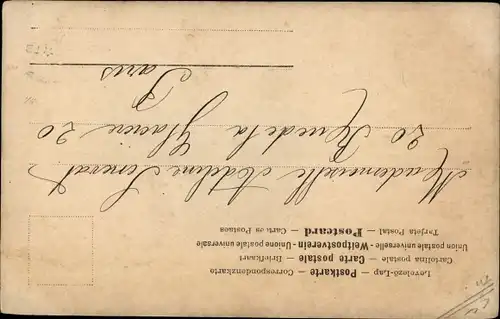 Levelező-Lap — Postkarte — Correspondenzkarte
Cartolina postale — Carte postale — Briefkaart
Union postale universelle - Weltpostverein - Unione postale universale
Tarjeta Postal — Postcard —
Mademoiselle
20 Rue de la Glacière 20
Paris